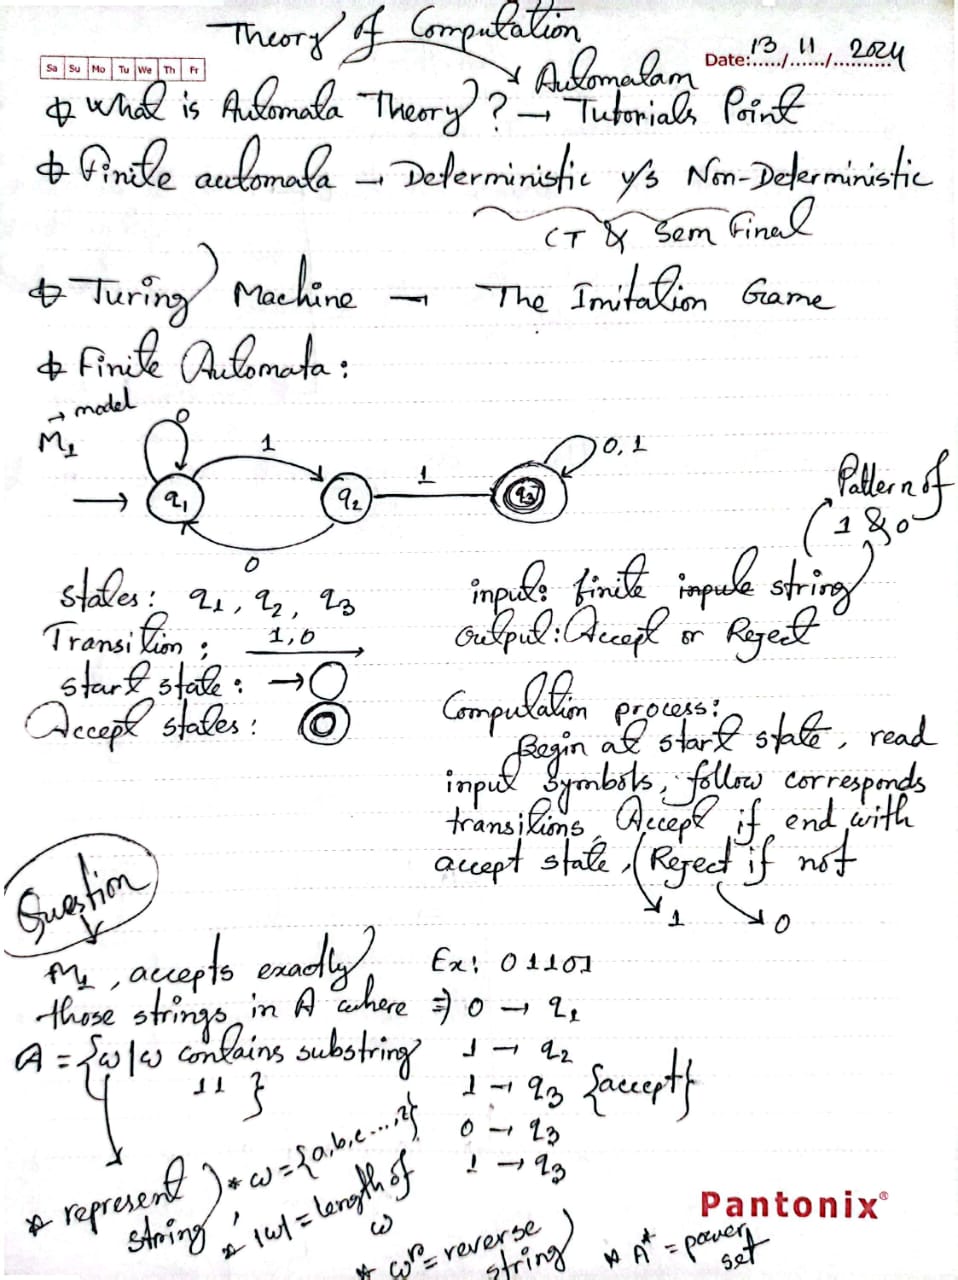 Theory of Computation
Sa Su Mo Tu We Th Fr
Date: 13/11/2024
Automatam
What is Automata Theory? → Tutorials Point
Finite automata → Deterministic v/s Non-Deterministic
CT & Sem Final
Turing Machine → The Imitation Game
Finite Automata:
→ model
M1
0
1
1
0, 1
q1
q2
q3
0
Pattern of
1 & 0
States: q1, q2, q3
Transition: 1,0
start state: →
Accept states:
input: finite string
output: Accept or Reject
Computation process:
Begin at start state, read
input symbols, follow corresponds
transitions, Accept if end with
accept state, Reject if not
1
0
Question
M1, accepts exactly
those strings in A where
A = {ω|ω contains substring
11 }
Ex: 01101
⇒ 0 → q1
1 → q2
1 → q3 {accept}
0 → q3
1 → q3
* represent
string
* ω = {a,b,c...,z}
* |ω| = length of
ω
* ωʳ = reverse
string
* A* = power
set
Pantonix®